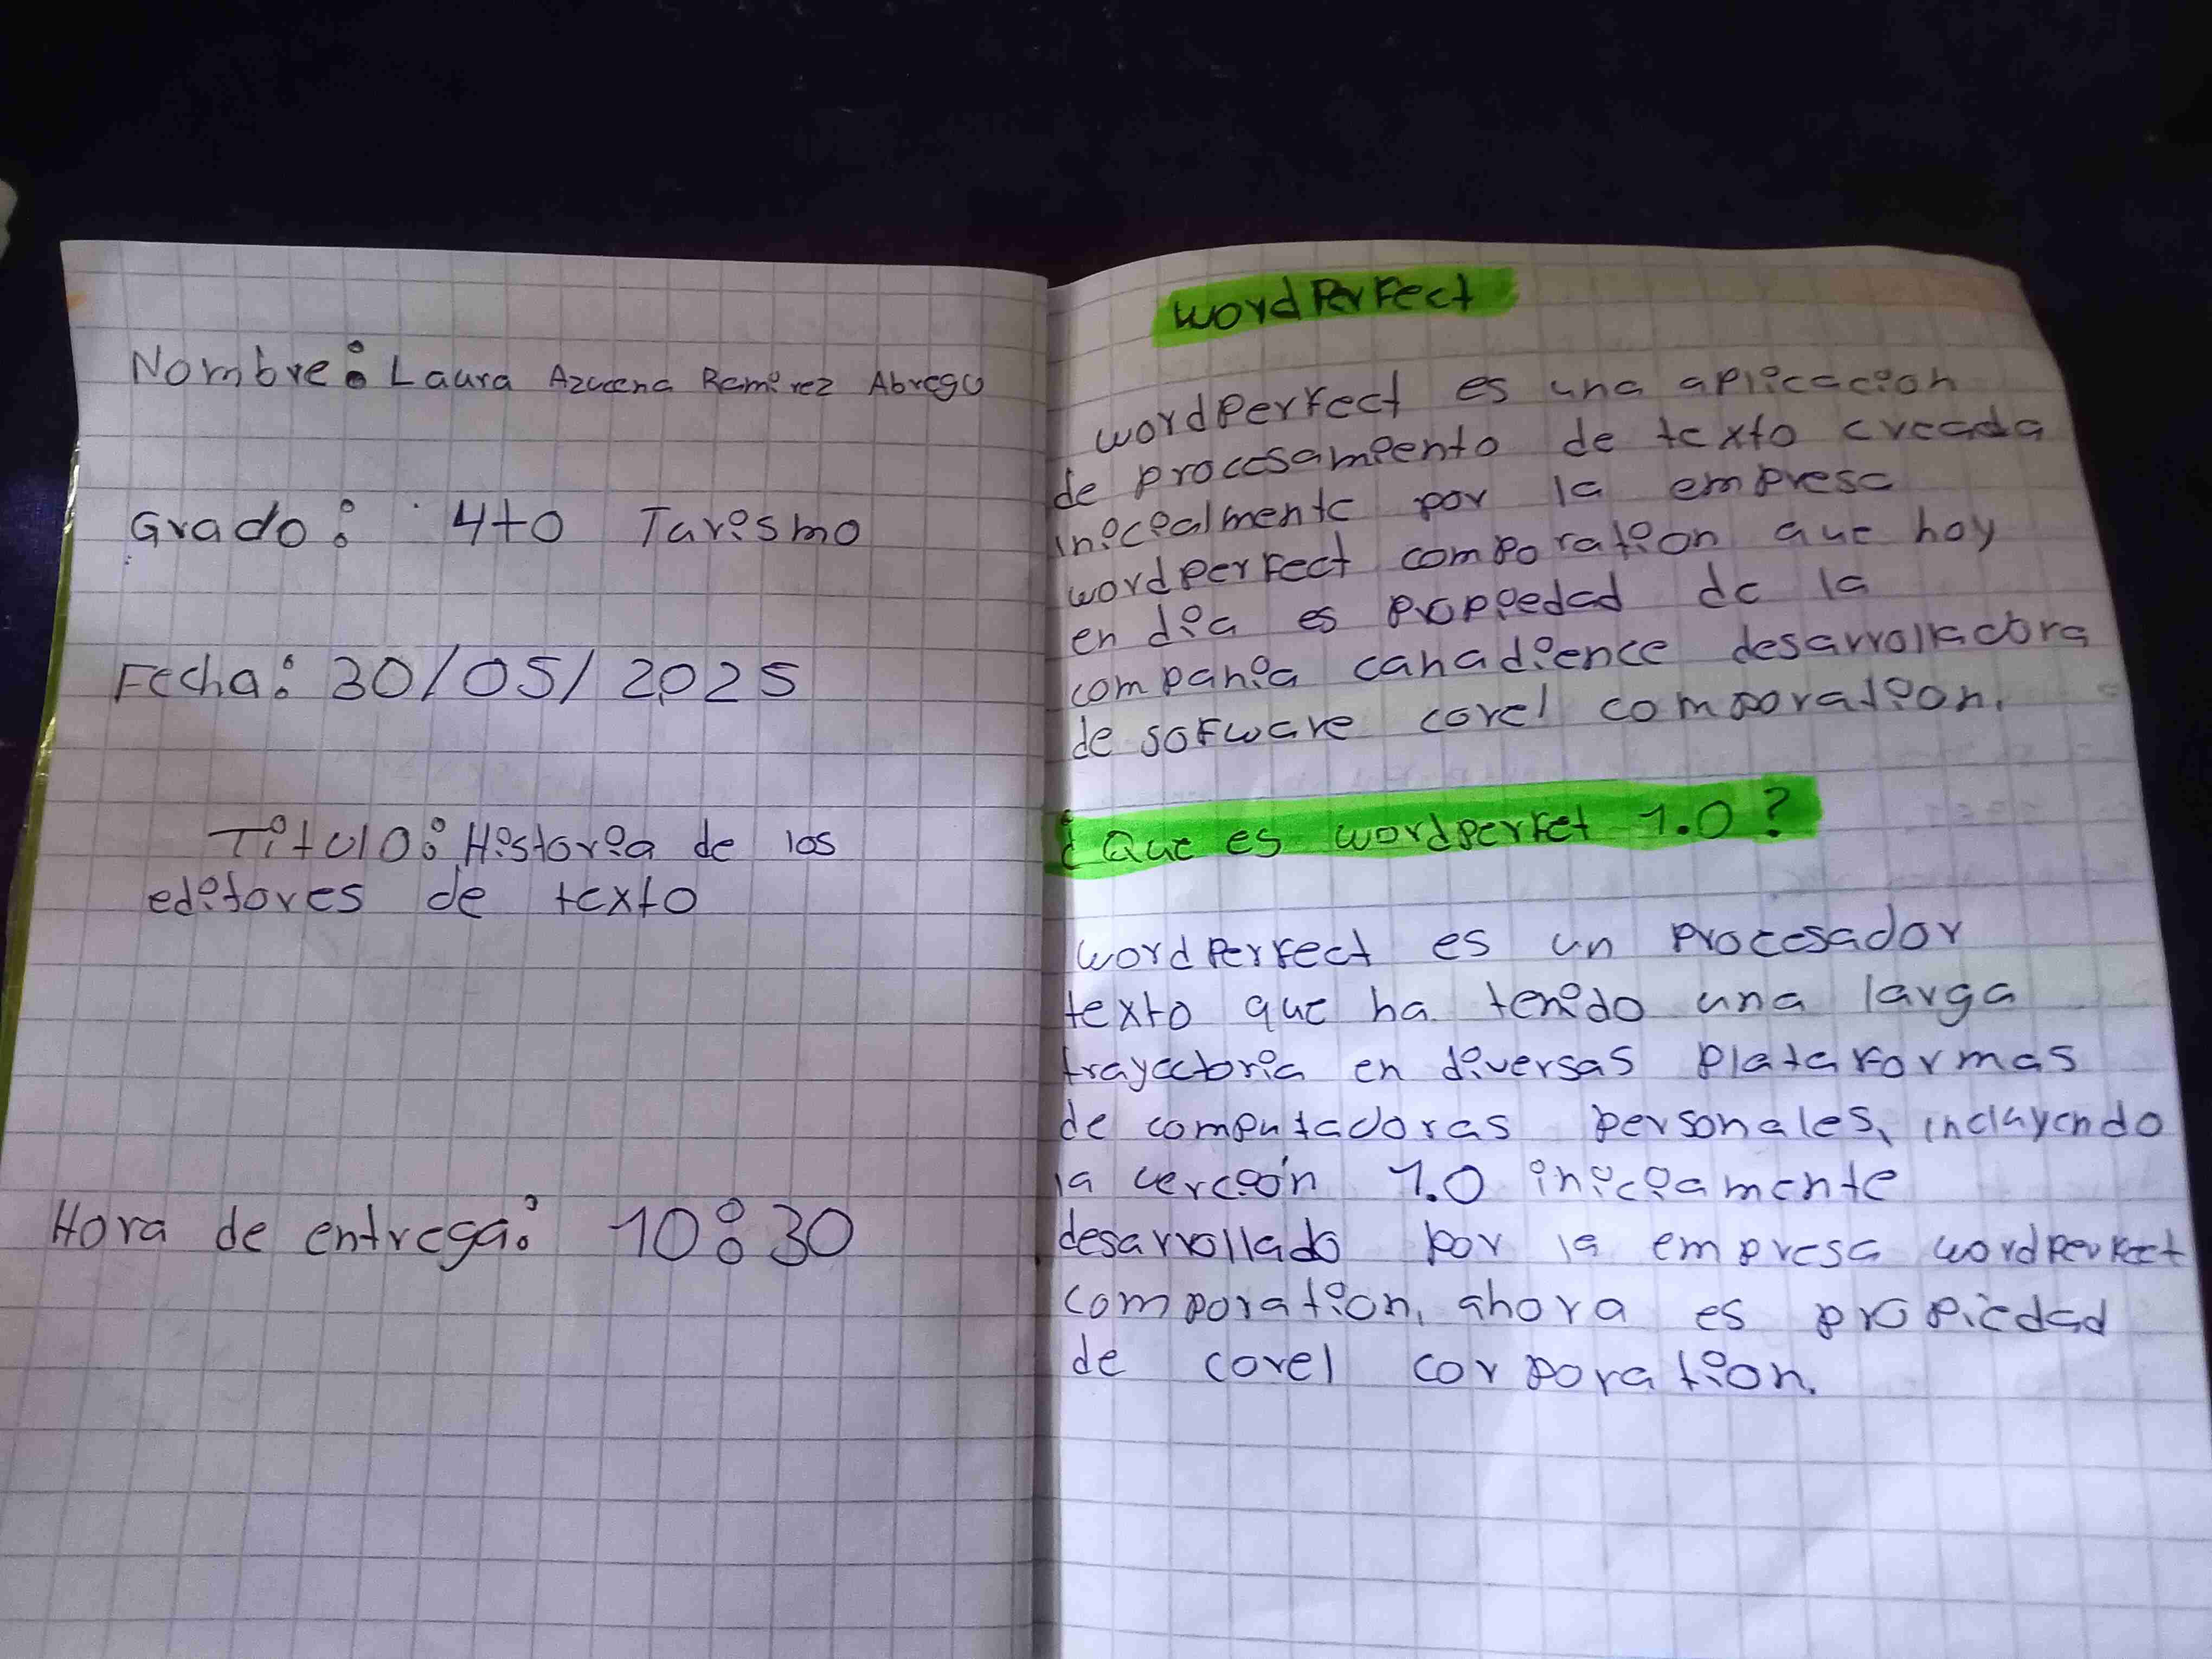 Nombre: Laura Azucena Ramirez Abrego
Grado: 4to Turismo
Fecha: 30/05/2025
Titulo: Historia de los
editores de texto
Hora de entrega: 10:30
WordPerfect
wordperfect es una aplicacion
de procesamiento de texto creada
inicialmente por la empresa
wordperfect comporation que hoy
en dia es propiedad de la
compania canadience desarrolladora
de sofware corel comporation.
¿Que es wordperfet 1.0?
wordperfect es un procesador
texto que ha tenido una larga
trayectoria en diversas plataformas
de computadoras personales, incluyendo
la verción 1.0 iniciamente
desarrollado por la empresa wordperfect
comporation, ahora es propiedad
de corel corporation.